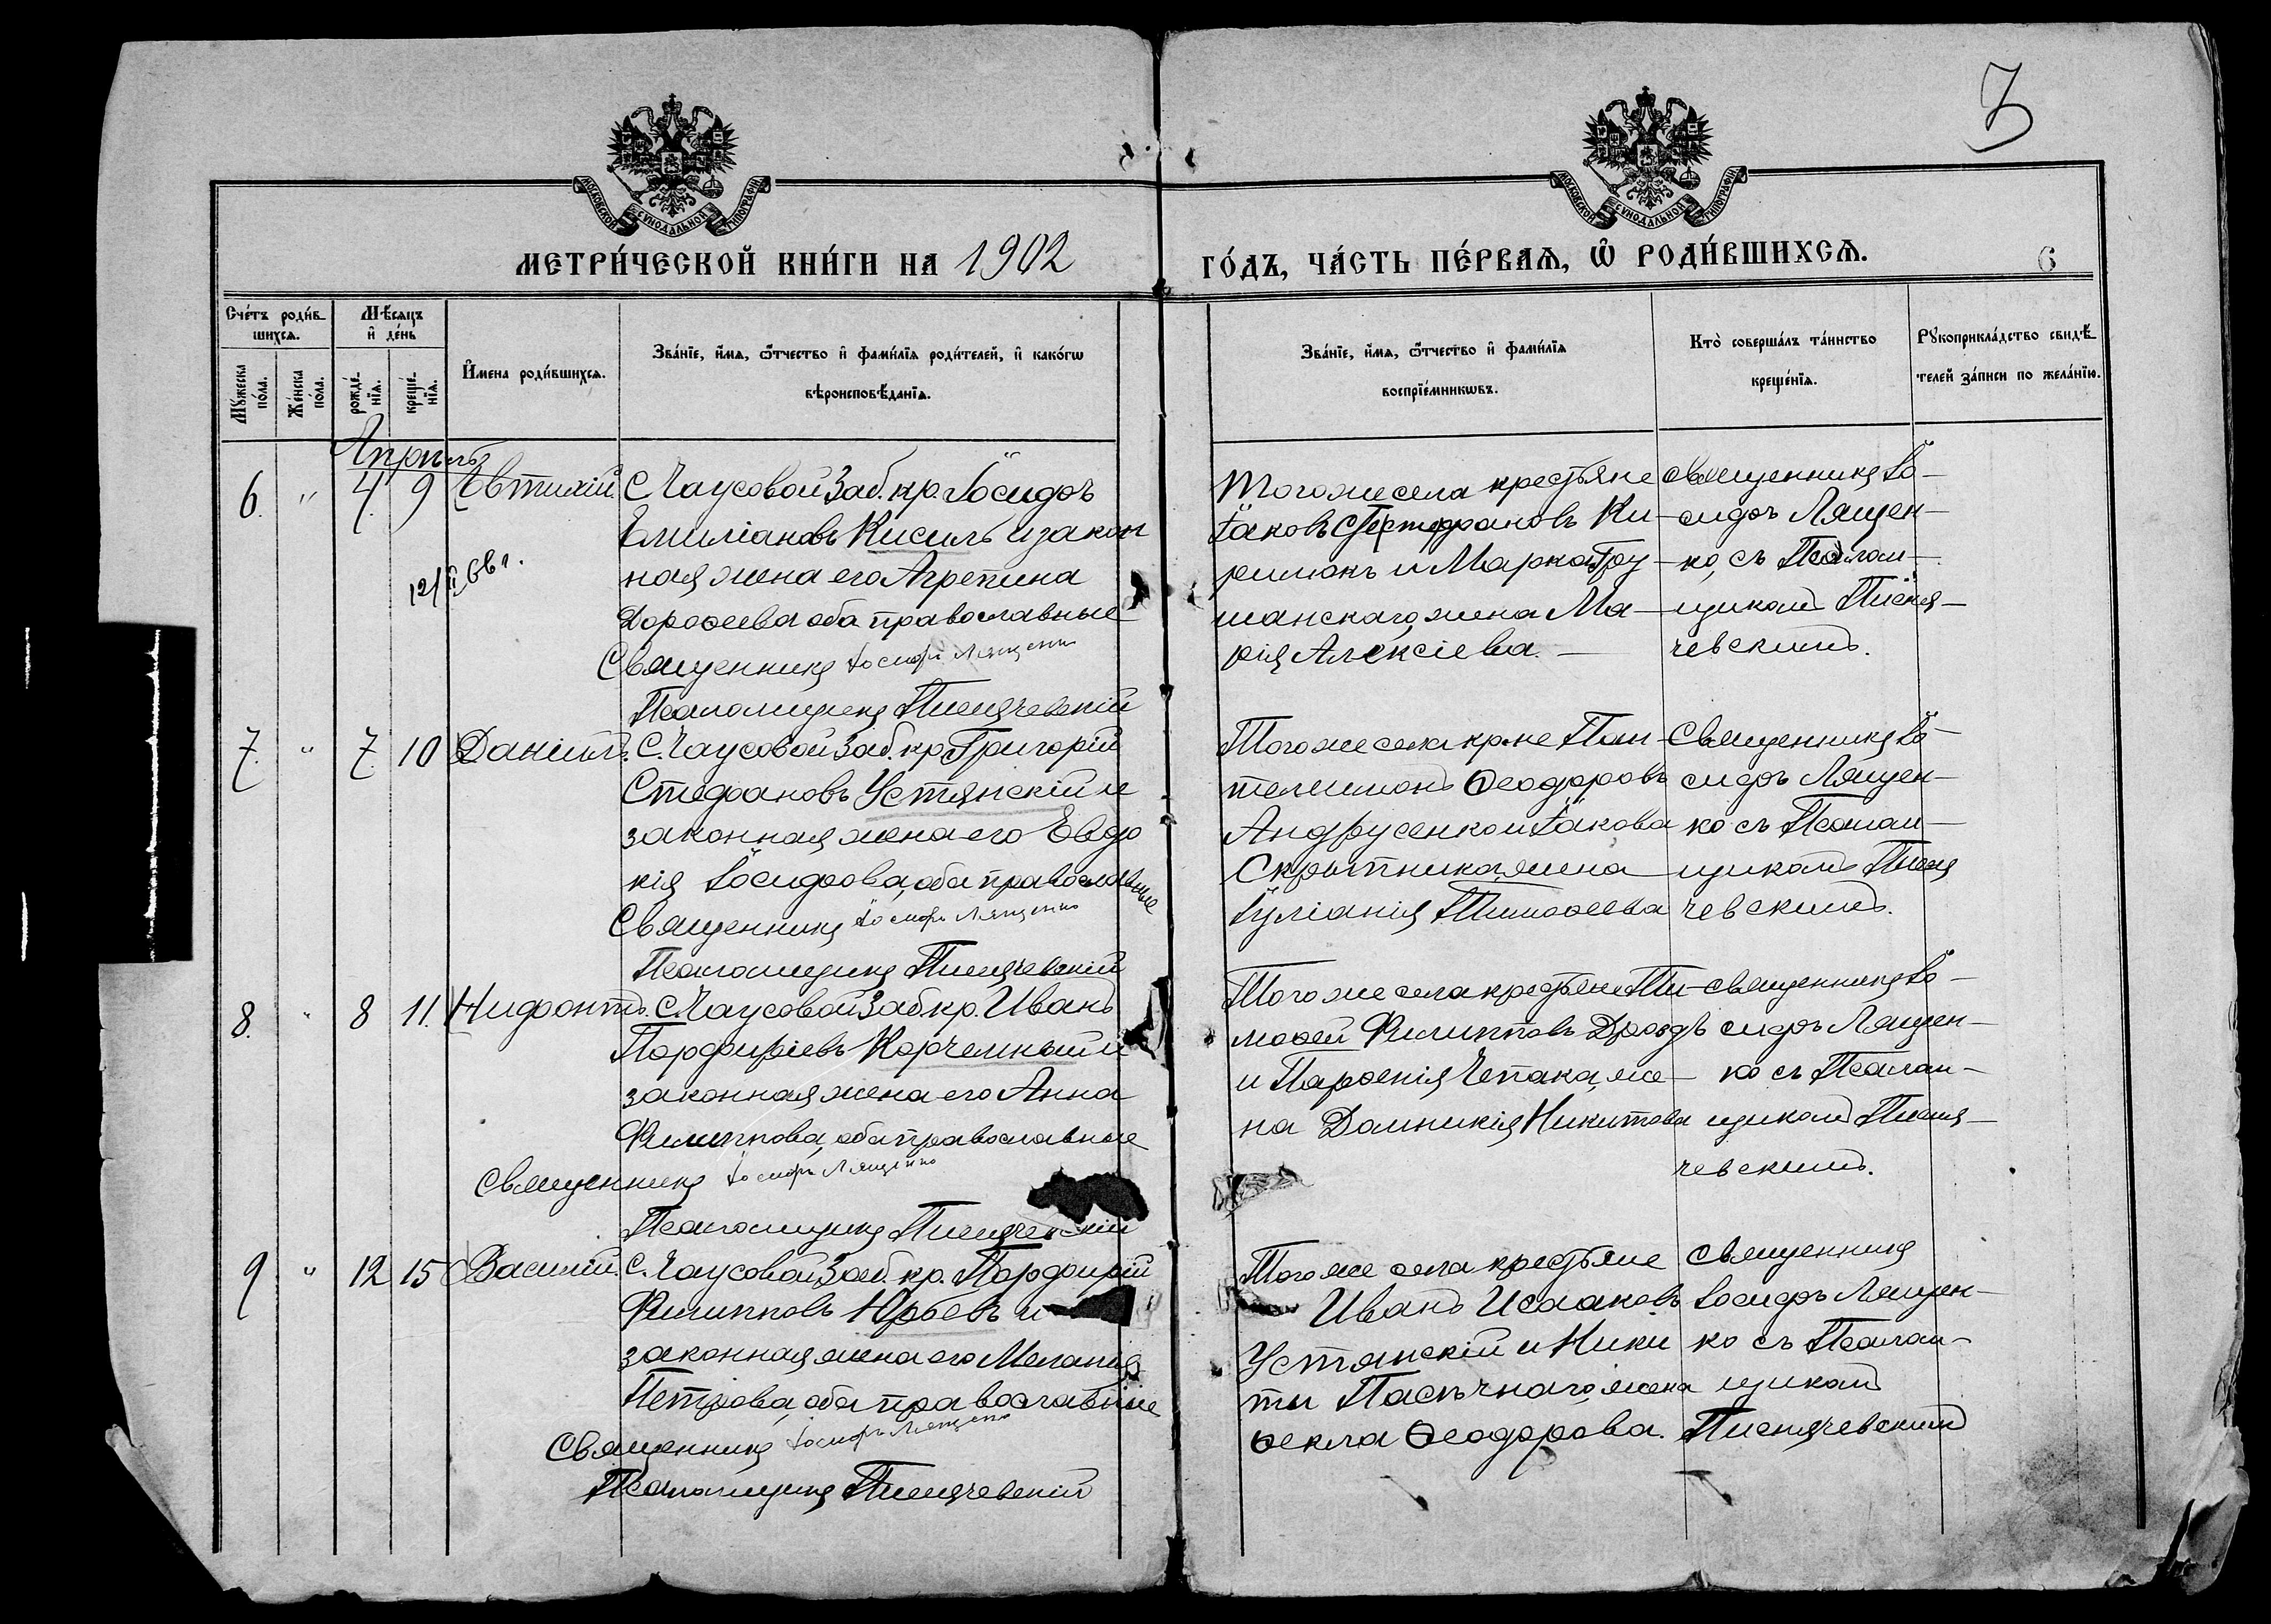 3
МОСКОВСКОЙ СѴНОДАЛЬНОЙ ТИПОГРАФІИ
МОСКОВСКОЙ СѴНОДАЛЬНОЙ ТИПОГРАФІИ
МЕТРИ́ЧЕСКОЙ КНИ́ГИ НА 1902
ГО́ДЪ, ЧА́СТЬ ПЕ́РВАѦ, Ѡ РОДИ́ВШИХСѦ.
6
Сче́тъ роди́в-
шихсѧ.
Мѣ́сѧцъ
и де́нь
Мꙋ́жеска по́ла.
Же́нска по́ла.
рожде́-нїѧ.
креще́-нїѧ.
И҆мена роди́вшихсѧ.
Зва́нїе, и҆́мѧ, ѻ҆́тчество и҆ фами́лїѧ роди́телей, и҆ како́гѡ
вѣроисповѣ́данїѧ.
Зва́нїе, и҆́мѧ, ѻ҆́тчество и҆ фами́лїѧ
воспрїе́мникѡвъ.
Кто̀ соверша́лъ та́инство
креще́нїѧ.
Рꙋкоприкла́дство свидѣ́-
телей за́писи по жела́нїю.
Апрѣль
6. " 4. 9 Евтихій. С Чаусовой Заб. кр. Іосифъ
Емиліановъ Кисиль и закон
ная жена его Агрепина
Дороѳеева оба православные
Священникъ Іосифъ Лященко
Псаломщикъ Писнячевскій
Того же села крестьяне
Іаковъ Стефановъ Ки-
риманъ и Марка Гру-
шанскаго жена Ма-
рія Алексіева.
Священникъ Іо-
сифъ Лящен-
ко, съ Псалом-
щикомъ Писня-
чевскимъ.
7. " 7. 10 Даніилъ. С. Чаусовой Заб. кр. Григорій
Стефановъ Устянскій и
законная жена его Евдо
кія Іосифова, оба православные
Священникъ Іосифъ Лященко
Псаломщикъ Писнячевскій
Того же села кр-не Пан-
телеимонъ Ѳеодоровъ
Андрусенко и Іакова
Скрыпника жена
Іуліанія Тимоѳеева
Священникъ Іо-
сифъ Лящен-
ко съ Псалом-
щикомъ Писня
чевскимъ.
8. " 8 11. Нифонтъ. С. Чаусовой Заб. кр. Иванъ
Порфиріевъ Корчемный и
законная жена его Анна
Филиппова, оба православные
Священникъ Іосифъ Лященко
Псаломщикъ Писнячевскій
Того же села крестьяне Ти-
моѳей Филипповъ Дроздъ
и Парѳенія Чепака, же-
на Домникія Никитова
Священникъ Іо-
сифъ Лящен-
ко съ Псалом-
щикомъ Писня-
чевскимъ.
9 " 12 15 Василій. С. Чаусовой Заб. кр. Порфирій
Филипповъ Юрьевъ и
законная жена его Меланія
Петрова, оба православные
Священникъ Іосифъ Лященко
Псаломщикъ Писнячевскій
Того же села крестьяне
Иванъ Исааковъ
Устянскій и Ники
ты Пасѣчнаго, жена
Ѳекла Ѳеодорова.
Священникъ
Іосифъ Лящен-
ко съ Псалом-
щикомъ
Писнячевскимъ